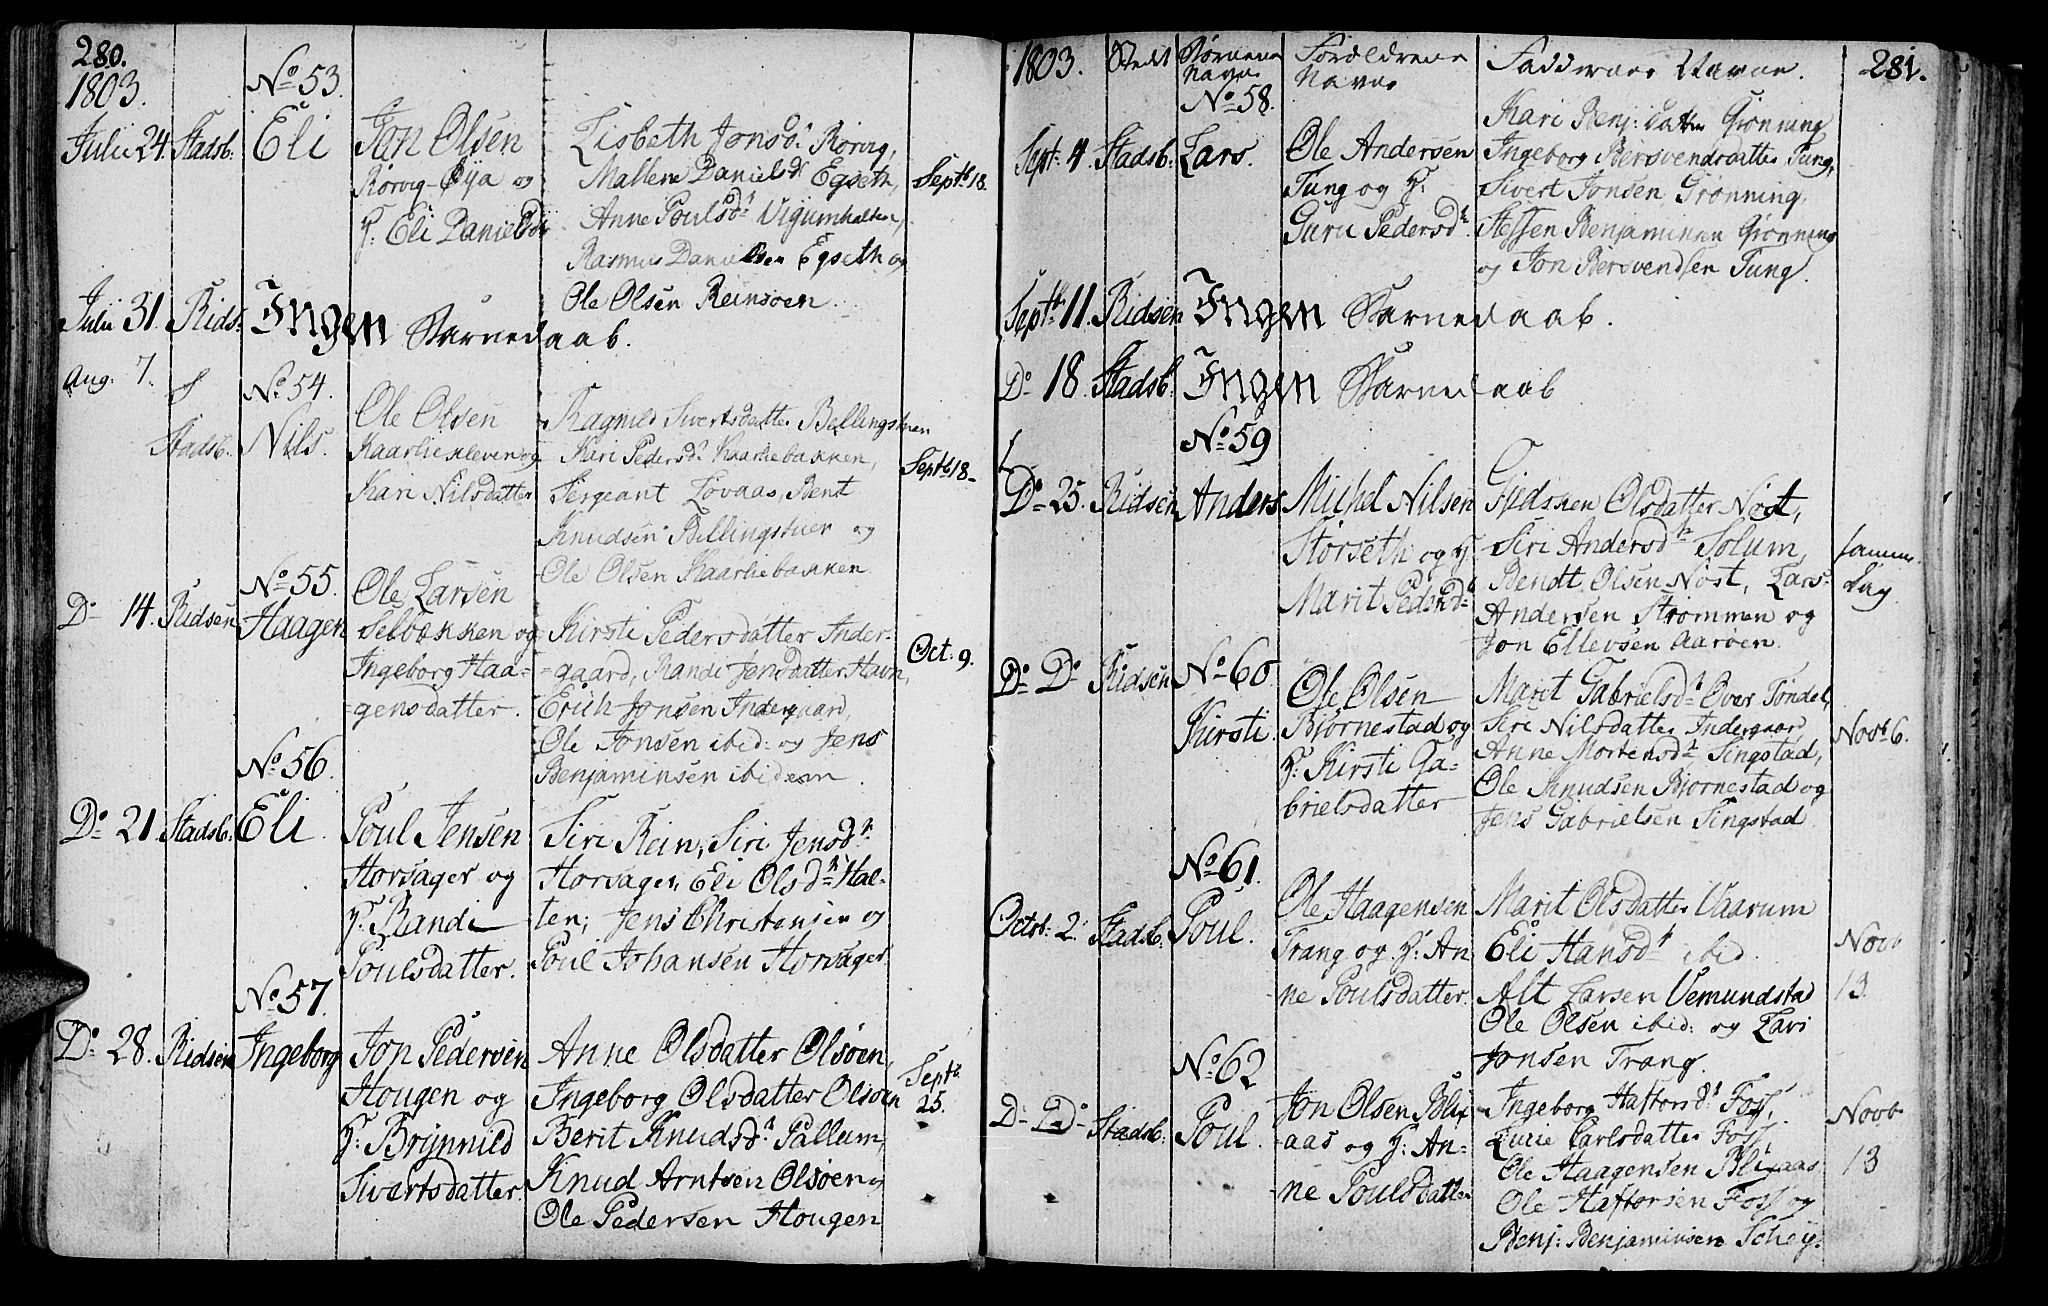 280.
1803.
No 53.
Julii 24. Stadsb: Eli
Jon Olsen
Rørvig-Øya og
H: Eli Danielsdr
Lisbeth Jonsdr Rørvig,
Mallene Danielsdr Egseth,
Anne Poulsdr Vigumhalten,
Rasmus Danielsen Egseth og
Ole Olsen Reinsøen
Septb 18.
Julii 31. Rids. Ingen Barnedaab.
Aug: 7.
Stadsb.
No 54.
Nils.
Ole Olsen
Kaarliekleven og
Kari Nilsdatter
Ragnild Sivertsdatter Bellingstuen
Kari Pedersdr Kaarliebakken,
Sergeant Lovaas, Bent
Knudsen Bellingstuer og
Ole Olsen Kaarliebakken
Septb 18.
No 55.
Do 14. Ridsen Haagen
Ole Larsen
Selbækken og
Ingeborg Haa-
=gensdatter.
Kirsti Pedersdatter Inder-
=gaard, Randi Jonsdatter Havn,
Erich Jonsen Indergaard,
Ole Jonsen ibid: og Jens
Benjaminsen ibidem
Oct. 9.
No 56.
Do 21. Stadsb. Eli.
Poul Jensen
Horsager og
H: Randi
Poulsdatter.
Siri Rein, Siri Jensdr
Horsager, Eli Olsdr Hal-
ten, Jens Christensen og
Poul Johansen Horsager.
No 57.
Do 28. Ridsen Ingeborg
Jon Pedersen
Hougen og
H: Brynnild
Sivertsdatter.
Anne Olsdatter Olsøen,
Ingeborg Olsdatter Olsøen
Berit Knudsdr Pallum,
Knud Arntsen Olsøen og
Ole Pedersen Hougen
Septb.
25.
1803. Stedt Børnens Navne Forældrene Navne Faddernes Navne. 281.
No 58.
Sept. 4 Stadsb. Lars.
Ole Andersen
Tung og H:
Guru Pedersdr
Kari Benj: datter Grønning
Ingeborg Bersvendsdatter Tung,
Sivert Jonsen Grønning,
Steffen Benjaminsen Grønning
og Jon Bersvendsen Tung.
Septb 11. Ridsen Ingen Barnedaab.
Do 18. Stadsb. Ingen Barnedaab
No 59
Do 25. Ridsen Anders
Michel Nilsen
Storseth og H:
Marit Pedersdr
Gjedsken Olsdatter Nøst,
Siri Andersdr Solum,
Bendt Olsen Nøst, Lars
Andersen Strømmen og
Jon Ellevsen Aarøen.
samme
Dag
No 60
Do Do Ridsen Kirsti
Ole Olsen
Bjørnestad og
H: Kirsti Ga-
brielsdatter
Marit Gabrielsdr Over Tøndel,
Siri Nilsdatter Indergaar
Anne Mortensdr Singstad,
Ole Knudsen Bjørnestad og
Jens Gabrielsen Singstad
Novb 6.
No 61.
Octb: 2. Stadsb. Poul.
Ole Haagensen
Trang og H: An
ne Poulsdatter.
Marit Olsdatter Vaarum
Eli Hansdr ibid.
Alt Larsen Vemundsta
Ole Olsen ibid: og Lars
Jonsen Trang.
Novb
13.
No 62
Do Do Stadsb. Poul.
Jon Olsen Blix-
aas og H: An-
ne Poulsdatter
Ingeborg Haftorsdr Foss,
Lucie Carlsdatter Foss,
Ole Haagensen Blixaas
Ole Haftorsen Foss og
Benj: Benjaminsen Schey.
Novb
13